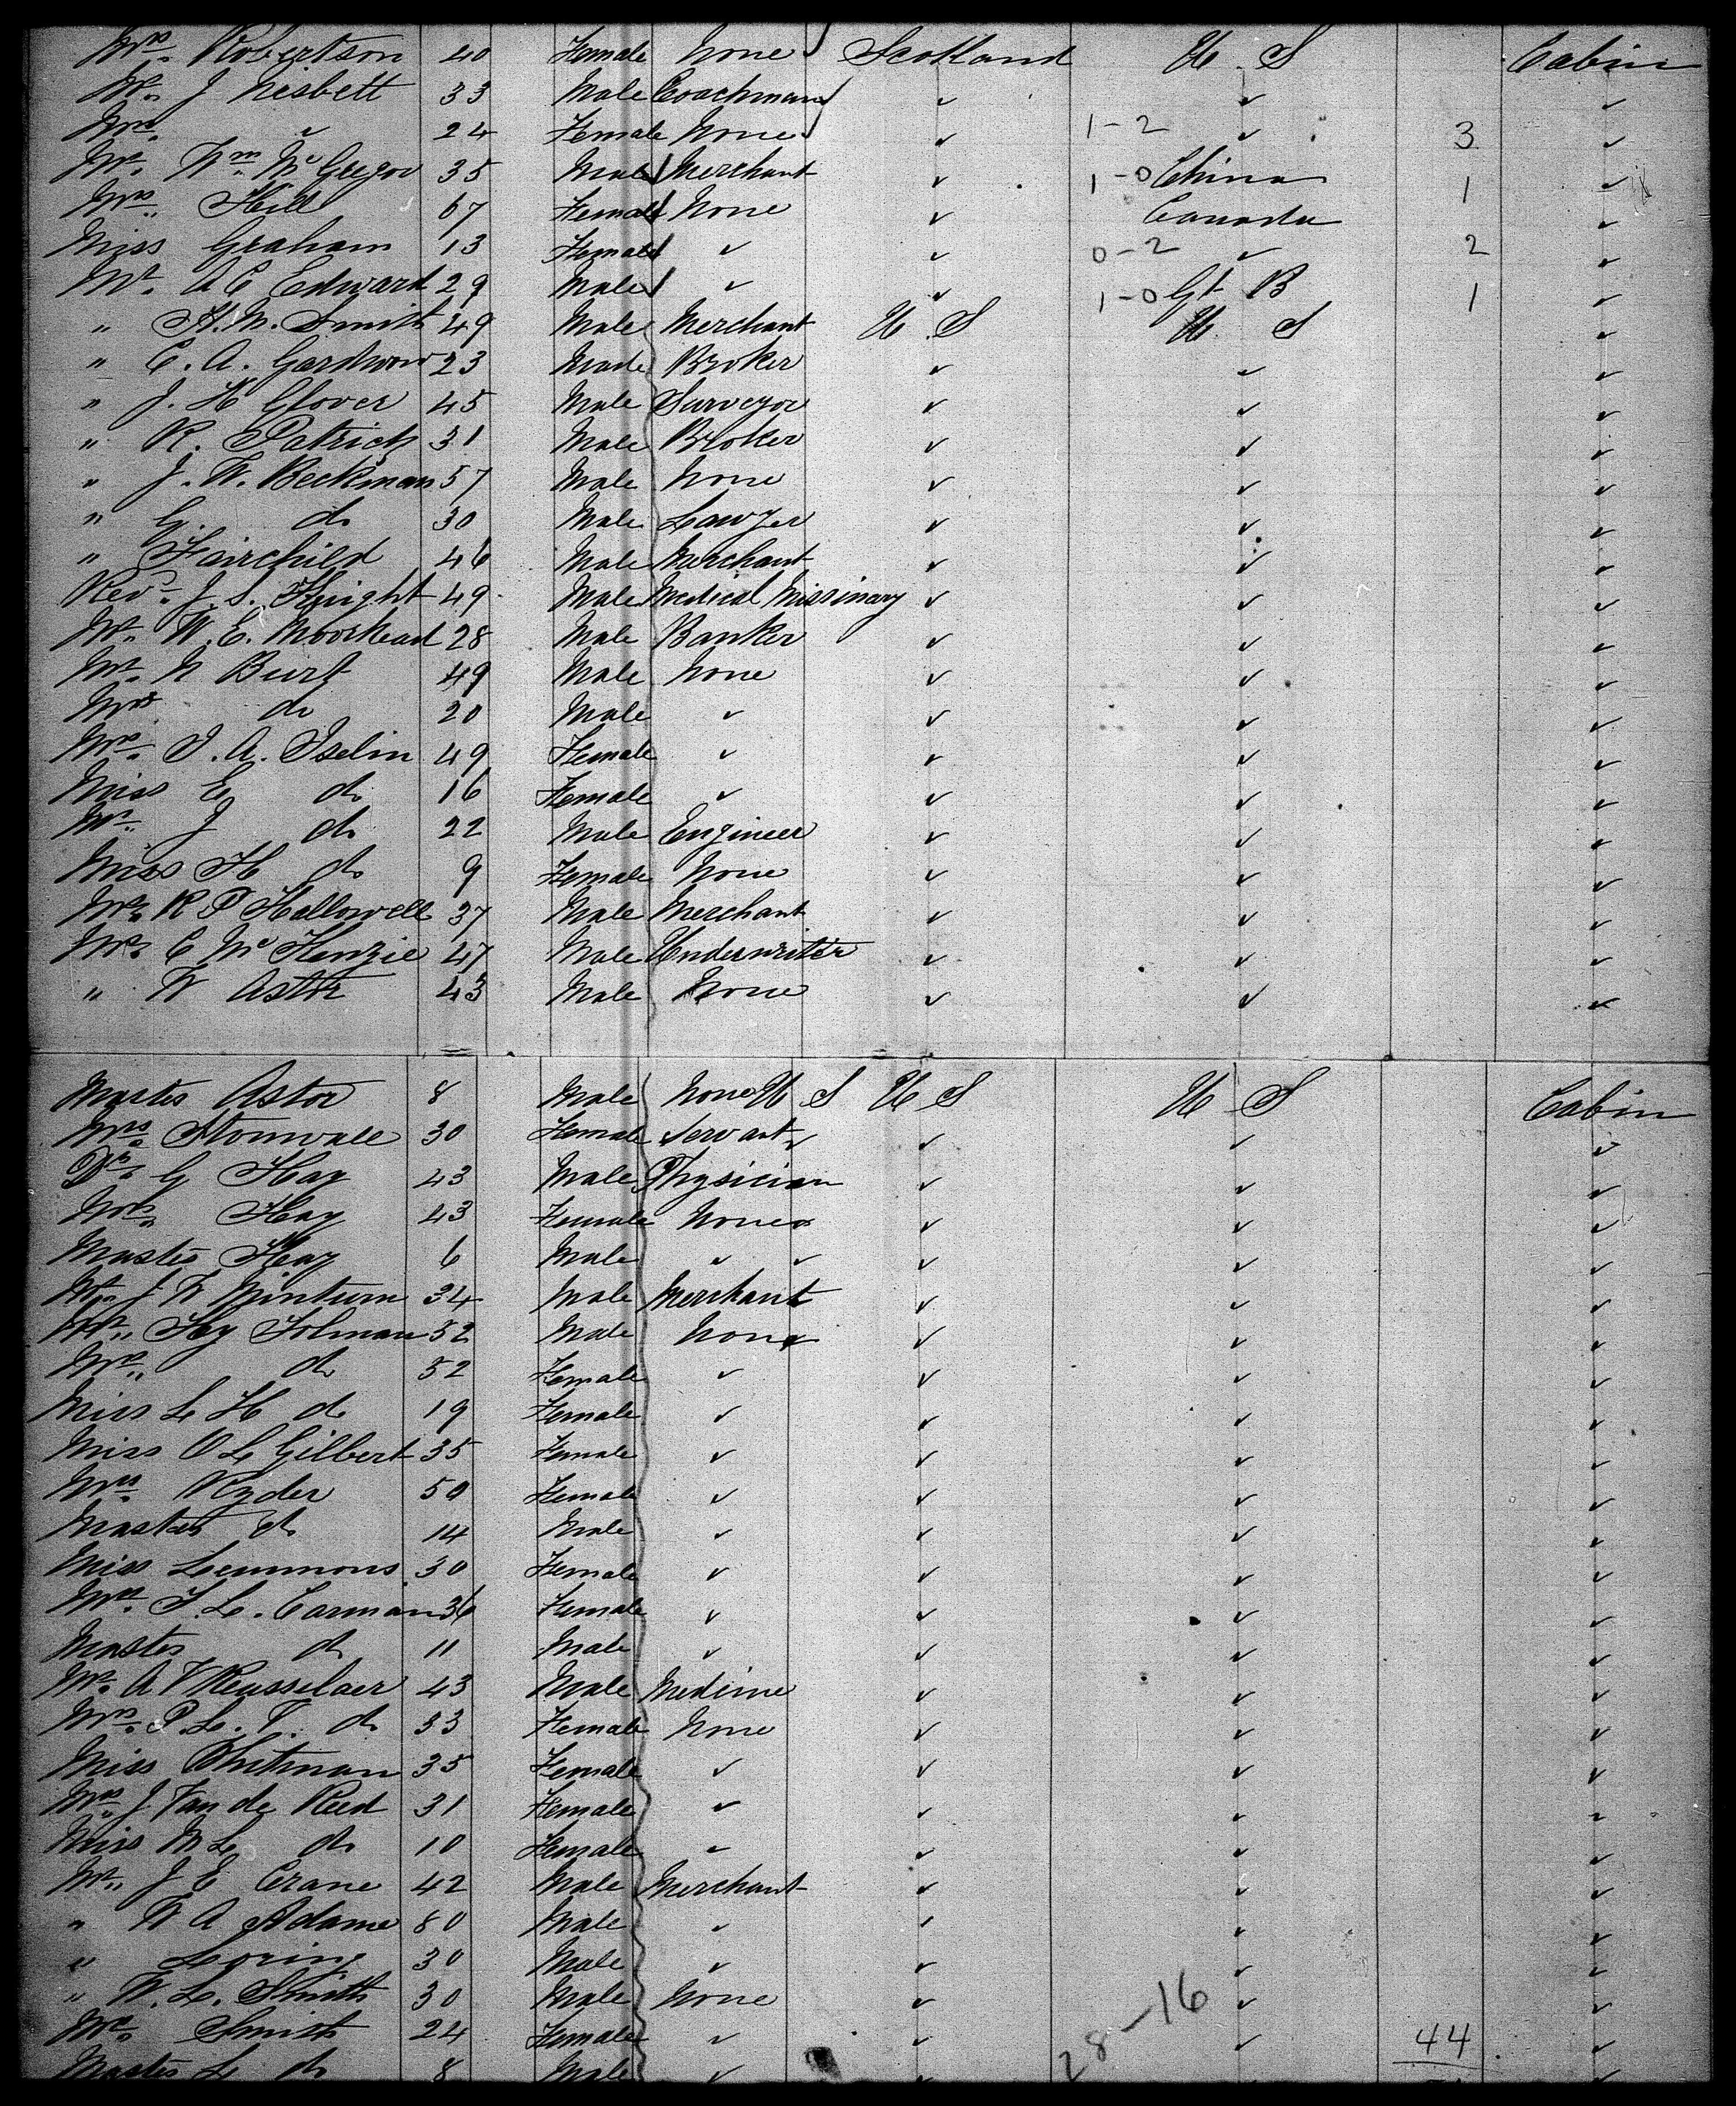 Mrs. Robertson 40 Female None Scotland U.S Cabin
Mr. J Nisbett 33 Male Coachman ✓ ✓ ✓
Mrs. ✓ 24 Female None ✓ 1-2 ✓ 3 ✓
Mr. Wm. McGregor 35 Male Merchant ✓ 1-0 China 1 ✓
Mrs. Hill 67 Female None ✓ Canada ✓
Miss Graham 13 Female ✓ ✓ 0-2 ✓ 2 ✓
Mr. A C Edward 29 Male ✓ ✓ 1-0 Gt B 1 ✓
" H. M. Smith 49 Male Merchant U.S U.S ✓
" C. A. 23 Male Broker ✓ ✓ ✓
" J. H Glover 45 Male Surveyor ✓ ✓ ✓
" R. Patrick 31 Male Broker ✓ ✓ ✓
" J. W. Beekman 57 Male None ✓ ✓ ✓
" G. do 30 Male Lawyer ✓ ✓ ✓
" Fairchild 46 Male Merchant ✓ ✓ ✓
Revd. J. S. Knight 49 Male Medical Missinary ✓ ✓ ✓
Mr. W. E. Moorhead 28 Male Banker ✓ ✓ ✓
Mr. N Burt 49 Male None ✓ ✓ ✓
Mrs do 20 Male ✓ ✓ ✓ ✓
Mrs. J. A. Iselin 49 Female ✓ ✓ ✓ ✓
Miss E do 16 Female ✓ ✓ ✓ ✓
Mr. J do 22 Male Engineer ✓ ✓ ✓
Miss H do 9 Female None ✓ ✓ ✓
Mr. R P Hallowell 37 Male Merchant ✓ ✓ ✓
Mr. C McKenzie 47 Male Underwriter ✓ ✓ ✓
" W Astor 43 Male None ✓ ✓ ✓
Master Astor 8 Male None U S U S U S Cabin
Mrs. Stonwall 30 Female Servant ✓ ✓ ✓ ✓
Dr. G Hay 43 Male Physician ✓ ✓ ✓
Mrs. Hay 43 Female None ✓ ✓ ✓
Master Hay 6 Male ✓ ✓ ✓ ✓ ✓
Mr. J W Minturn 34 Male Merchant ✓ ✓ ✓
Mr. Hy Tolman 52 Male None ✓ ✓ ✓
Mrs. do 52 Female ✓ ✓ ✓ ✓
Miss L H do 19 Female ✓ ✓ ✓ ✓
Miss O L Gilbert 35 Female ✓ ✓ ✓ ✓
Mrs. Ryder 50 Female ✓ ✓ ✓ ✓
Master do 14 Male ✓ ✓ ✓ ✓
Miss Lemmons 30 Female ✓ ✓ ✓ ✓
Mrs. F. L. Carman 36 Female ✓ ✓ ✓ ✓
Master do 11 Male ✓ ✓ ✓ ✓
Mr. A V Rensselaer 43 Male Medicine ✓ ✓ ✓
Mrs. P. L. V. do 33 Female None ✓ ✓ ✓
Miss Whitman 35 Female ✓ ✓ ✓ ✓
Mrs. J Van de Reed 31 Female ✓ ✓ ✓ ✓
Miss M L do 10 Female ✓ ✓ ✓ ✓
Mr. J E Crane 42 Male Merchant ✓ ✓ ✓
" W A Adams 80 Male ✓ ✓ ✓ ✓
" Loring 30 Male ✓ ✓ ✓ ✓
" W. L. Smith 30 Male None ✓ ✓ ✓
Mrs. Smith 24 Female ✓ ✓ 28-16 ✓ 44 ✓
Master L do 8 Male ✓